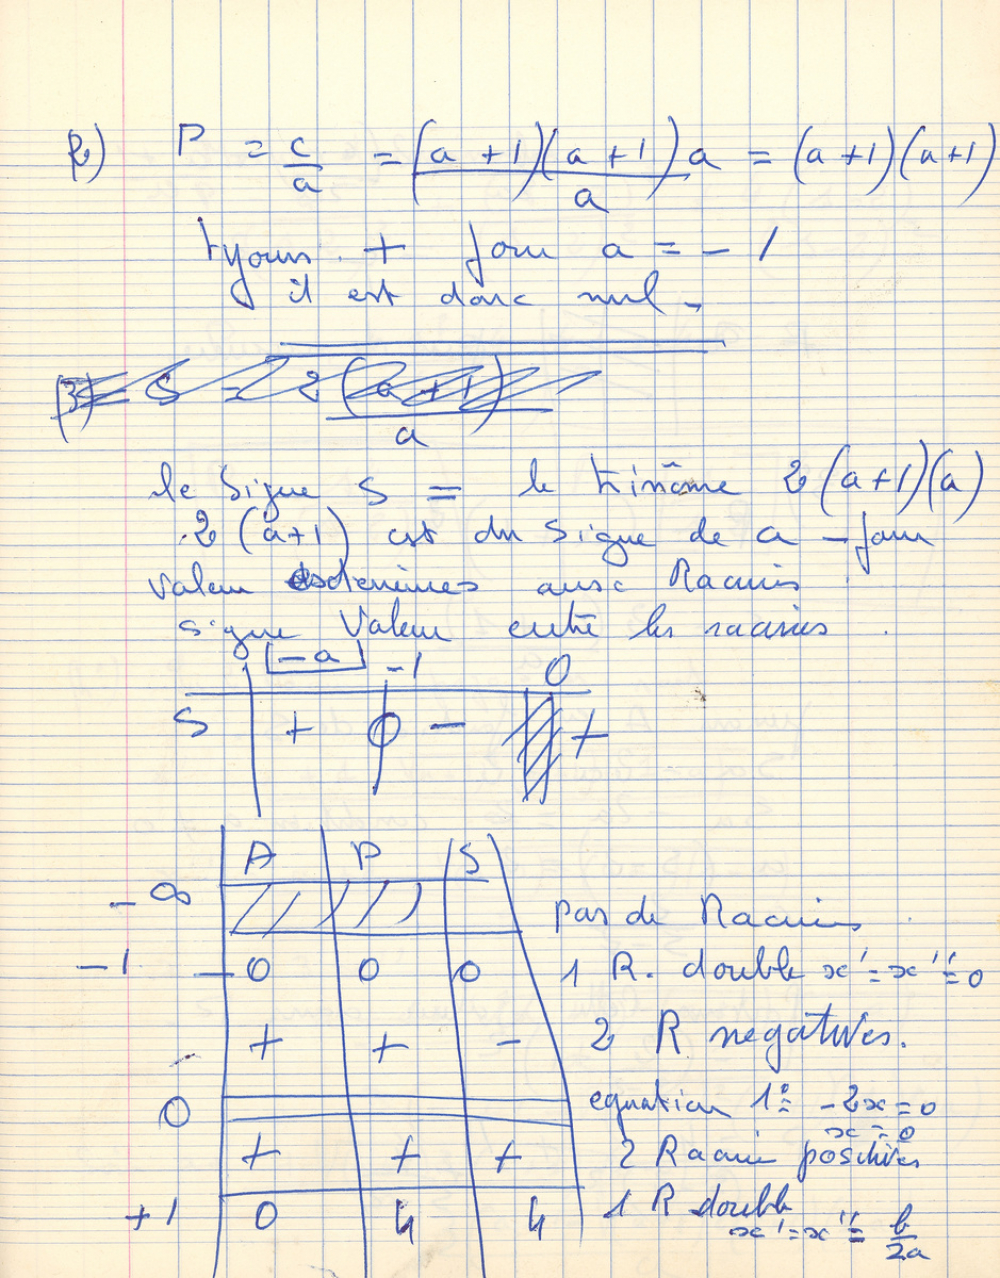 2) P = c/a = (a+1)(a+1)a/a = (a+1)(a+1)
+ pour a = -1
il est donc nul -
3) S = 2(a+1)/a
le Signe S = le trinôme 2(a+1)(a)
2(a+1) est du Signe de a - pour
valeur aux Racines
signe Valeur entre les racines.
[-a] -1 0
S + 0 - +
A P S
-∞ pas de Racines.
-1 0 0 0 1 R. double x'=x''=0
+ + - 2 R negatives.
0 equation 1°= -2x=0
x=0
+ + + 2 Racine positives
+1 0 4 4 1 R double
x'=x''= b/2a